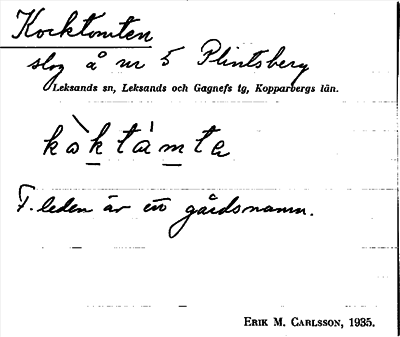 Kocktomten
slog å nr 5 Plintsberg
Leksands sn, Leksands och Gagnefs tg, Kopparbergs län.
kòktámta
F. leden är ett gårdsnamn.
ERIK M. CARLSSON, 1935.